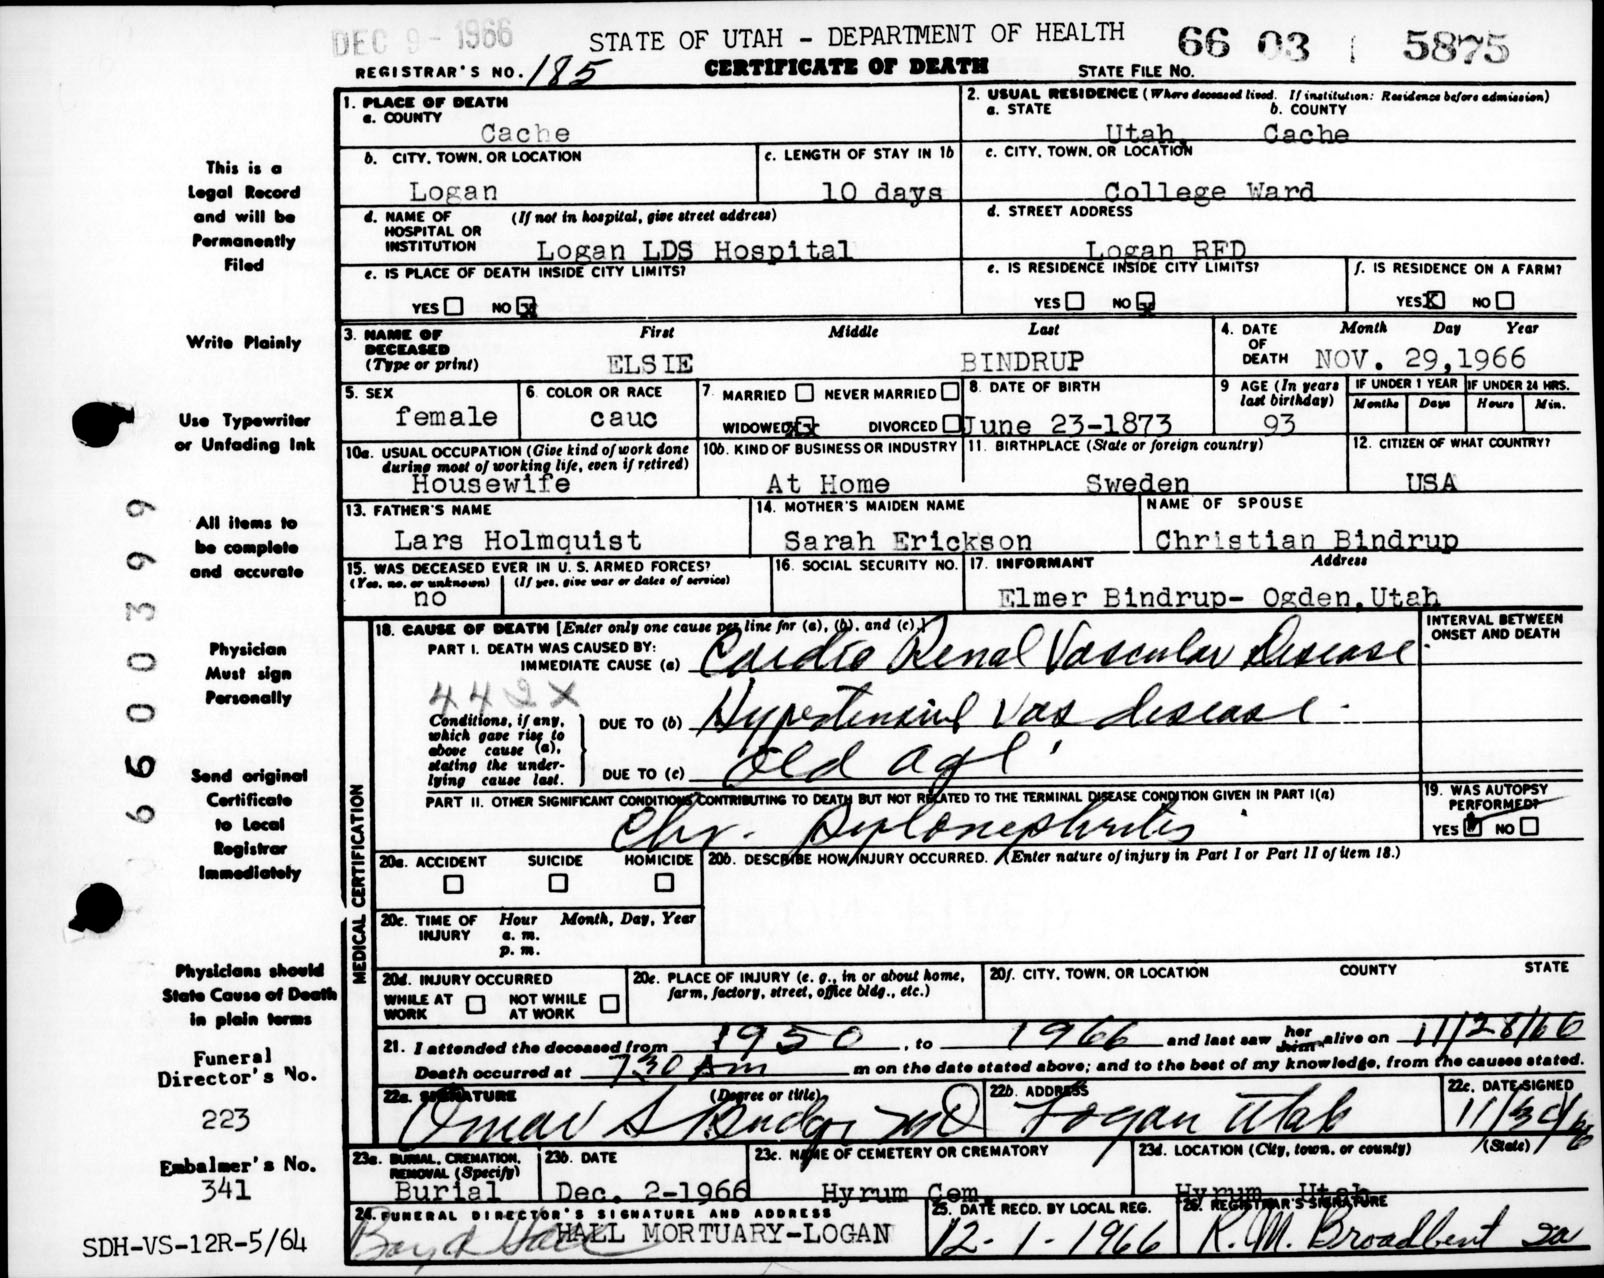 DEC 9 - 1966
STATE OF UTAH - DEPARTMENT OF HEALTH
66 03 5875
REGISTRAR'S NO. 185
CERTIFICATE OF DEATH
STATE FILE NO.
This is a
Legal Record
and will be
Permanently
Filed
Write Plainly
Use Typewriter
or Unfading Ink
All items to
be complete
and accurate
Physician
Must sign
Personally
Send original
Certificate
to Local
Registrar
Immediately
Physicians should
State Cause of Death
in plain terms
Funeral
Director's No.
223
Embalmer's No.
341
SDH-VS-12R-5/64
6600399
1. PLACE OF DEATH
a. COUNTY
Cache
2. USUAL RESIDENCE (Where deceased lived. If institution: Residence before admission)
a. STATE b. COUNTY
Utah, Cache
b. CITY, TOWN, OR LOCATION
Logan
c. LENGTH OF STAY IN 1b
10 days
c. CITY, TOWN, OR LOCATION
College Ward
d. NAME OF HOSPITAL OR INSTITUTION (If not in hospital, give street address)
Logan LDS Hospital
d. STREET ADDRESS
Logan RFD
e. IS PLACE OF DEATH INSIDE CITY LIMITS?
YES NO X
e. IS RESIDENCE INSIDE CITY LIMITS?
YES NO X
f. IS RESIDENCE ON A FARM?
YES X NO
3. NAME OF DECEASED (Type or print)
First Middle Last
ELSIE BINDRUP
4. DATE OF DEATH
Month Day Year
NOV. 29,1966
5. SEX
female
6. COLOR OR RACE
cauc
7. MARRIED NEVER MARRIED
WIDOWED X DIVORCED
8. DATE OF BIRTH
June 23-1873
9 AGE (In years last birthday)
93
IF UNDER 1 YEAR
Months Days
IF UNDER 24 HRS.
Hours Min.
10a. USUAL OCCUPATION (Give kind of work done during most of working life, even if retired)
Housewife
10b. KIND OF BUSINESS OR INDUSTRY
At Home
11. BIRTHPLACE (State or foreign country)
Sweden
12. CITIZEN OF WHAT COUNTRY?
USA
13. FATHER'S NAME
Lars Holmquist
14. MOTHER'S MAIDEN NAME
Sarah Erickson
NAME OF SPOUSE
Christian Bindrup
15. WAS DECEASED EVER IN U. S. ARMED FORCES?
(Yes, no, or unknown) (If yes, give war or dates of service)
no
16. SOCIAL SECURITY NO.
17. INFORMANT Address
Elmer Bindrup- Ogden,Utah
MEDICAL CERTIFICATION
18. CAUSE OF DEATH [Enter only one cause per line for (a), (b), and (c).]
INTERVAL BETWEEN ONSET AND DEATH
PART I. DEATH WAS CAUSED BY:
IMMEDIATE CAUSE (a) Cardio Renal Vascular Disease
442X
Conditions, if any, which gave rise to above cause (a), stating the underlying cause last.
DUE TO (b) Hypertensive Vas disease
DUE TO (c) Old age
PART II. OTHER SIGNIFICANT CONDITIONS CONTRIBUTING TO DEATH BUT NOT RELATED TO THE TERMINAL DISEASE CONDITION GIVEN IN PART I(a)
Chr. Pyelonephritis
19. WAS AUTOPSY PERFORMED?
YES NO
20a. ACCIDENT SUICIDE HOMICIDE
20b. DESCRIBE HOW INJURY OCCURRED. (Enter nature of injury in Part I or Part II of item 18.)
20c. TIME OF INJURY
Hour Month, Day, Year
a. m.
p. m.
20d. INJURY OCCURRED
WHILE AT WORK NOT WHILE AT WORK
20e. PLACE OF INJURY (e. g., in or about home, farm, factory, street, office bldg., etc.)
20f. CITY, TOWN, OR LOCATION COUNTY STATE
21. I attended the deceased from 1950, to 1966 and last saw her him alive on 11/28/66
Death occurred at 730 Am m on the date stated above; and to the best of my knowledge, from the causes stated.
22a. SIGNATURE (Degree or title)
Omar S Budge MD
22b. ADDRESS
Logan Utah
22c. DATE SIGNED
11/30/66
23a. BURIAL, CREMATION, REMOVAL (Specify)
Burial
23b. DATE
Dec. 2-1966
23c. NAME OF CEMETERY OR CREMATORY
Hyrum Cem.
23d. LOCATION (City, town, or county) (State)
Hyrum, Utah
24. FUNERAL DIRECTOR'S SIGNATURE AND ADDRESS
Boyd Hall HALL MORTUARY-LOGAN
25. DATE RECD. BY LOCAL REG.
12-1-1966
26. REGISTRAR'S SIGNATURE
R. M. Broadbent